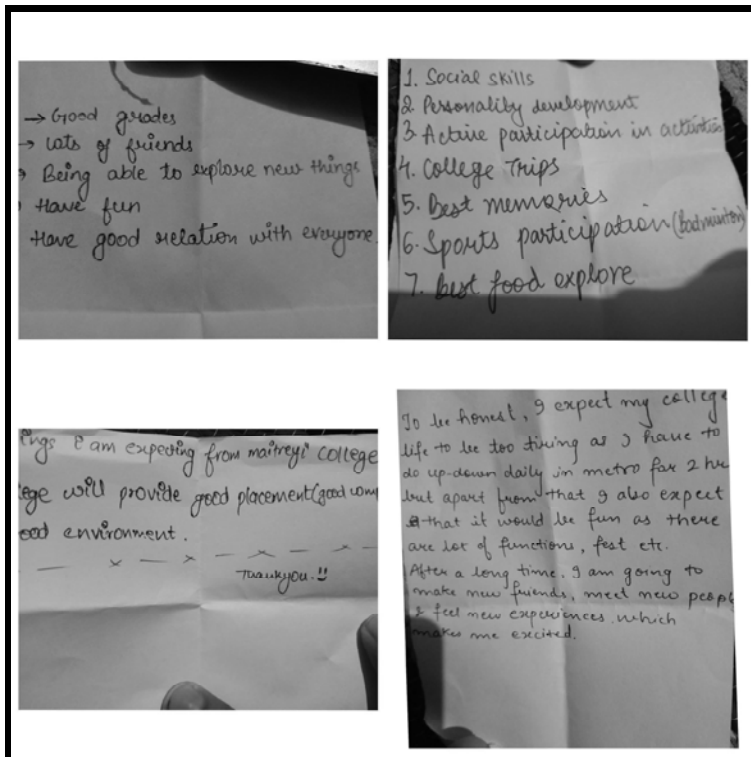 → Good grades
→ Lots of friends
→ Being able to explore new things
Have fun
Have good relation with everyone.
1. Social skills
2. Personality development
3. Active participation in
4. College Trips
5. Best memories
6. Sports participation (badminton)
7. Best food explore
i am expecting from maitreyi college
will provide good placement (good
environment.
— × — × — — × — — × —
Thankyou.!!
To be honest, I expect my college
life to be too tiring as I have to
do up-down daily in metro for 2 hr
but apart from that I also expect
that it would be fun as there
are lot of functions, fest etc.
After a long time, I am going to
make new friends, meet new
& feel new experiences which
makes me excited.